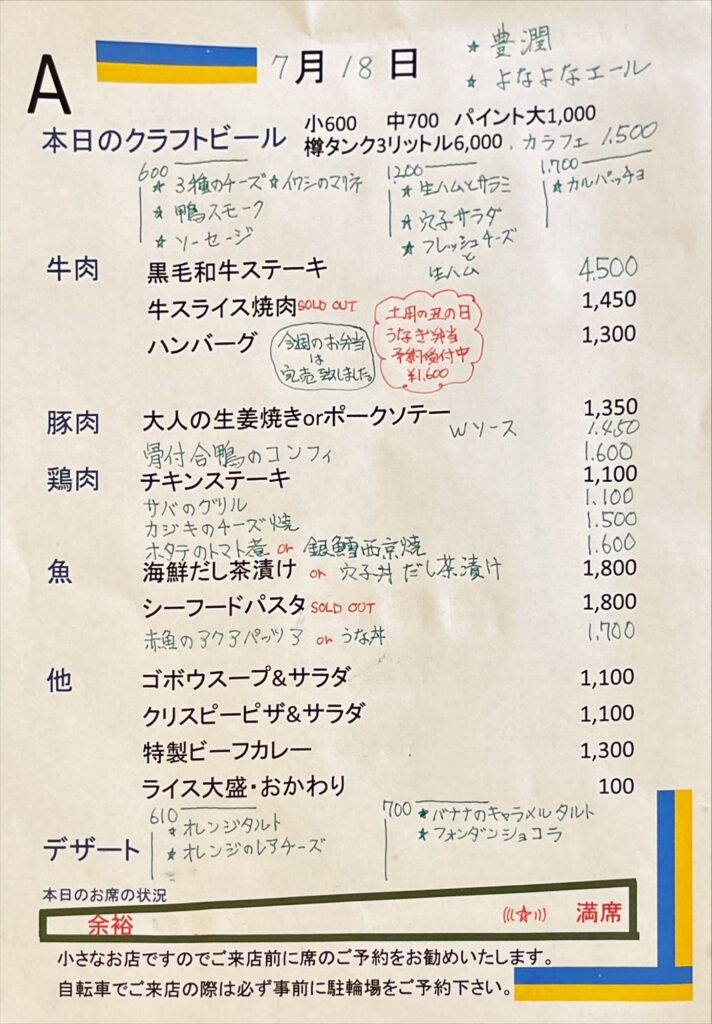 A
7月18日
★豊潤
★よなよなエール
本日のクラフトビール 小600 中700 パイント大1,000
樽タンク3リットル6,000 . カラフェ 1.500
600
★3種のチーズ ★イワシのマリネ
★鴨スモーク
★ソーセージ
1200
★生ハムとサラミ
★穴子サラダ
★フレッシュチーズ
と
生ハム
1.700
★カルパッチョ
牛肉 黒毛和牛ステーキ 4.500
牛スライス焼肉 SOLD OUT 1,450
ハンバーグ 1,300
今週のお弁当
は
完売致しました。
土用の丑の日
うなぎ弁当
予約受付中
¥1.600
豚肉 大人の生姜焼きorポークソテー 1,350
Wソース 1.450
骨付合鴨のコンフィ 1.600
鶏肉 チキンステーキ 1,100
サバのグリル 1.100
カジキのチーズ焼 1.500
ホタテのトマト煮 or 銀鱈西京焼 1.600
魚 海鮮だし茶漬け or 穴子丼だし茶漬け 1,800
シーフードパスタ SOLD OUT 1,800
赤魚のアクアパッツア or うな丼 1.700
他 ゴボウスープ&サラダ 1,100
クリスピーピザ&サラダ 1,100
特製ビーフカレー 1,300
ライス大盛・おかわり 100
デザート
610
★オレンジタルト
★オレンジのレアチーズ
700
★バナナのキャラメルタルト
★フォンダンショコラ
本日のお席の状況
余裕 (((☆))) 満席
小さなお店ですのでご来店前に席のご予約をお勧めいたします。
自転車でご来店の際は必ず事前に駐輪場をご予約下さい。